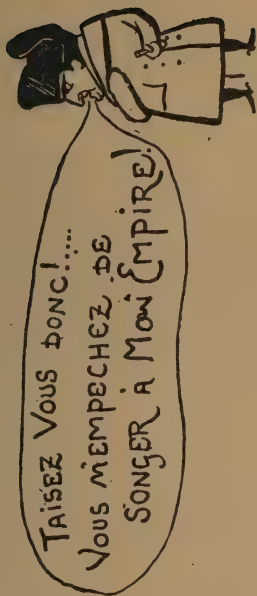 TAISEZ VOUS DONC!.....
VOUS M'EMPECHEZ DE
SONGER À MON EMPIRE!